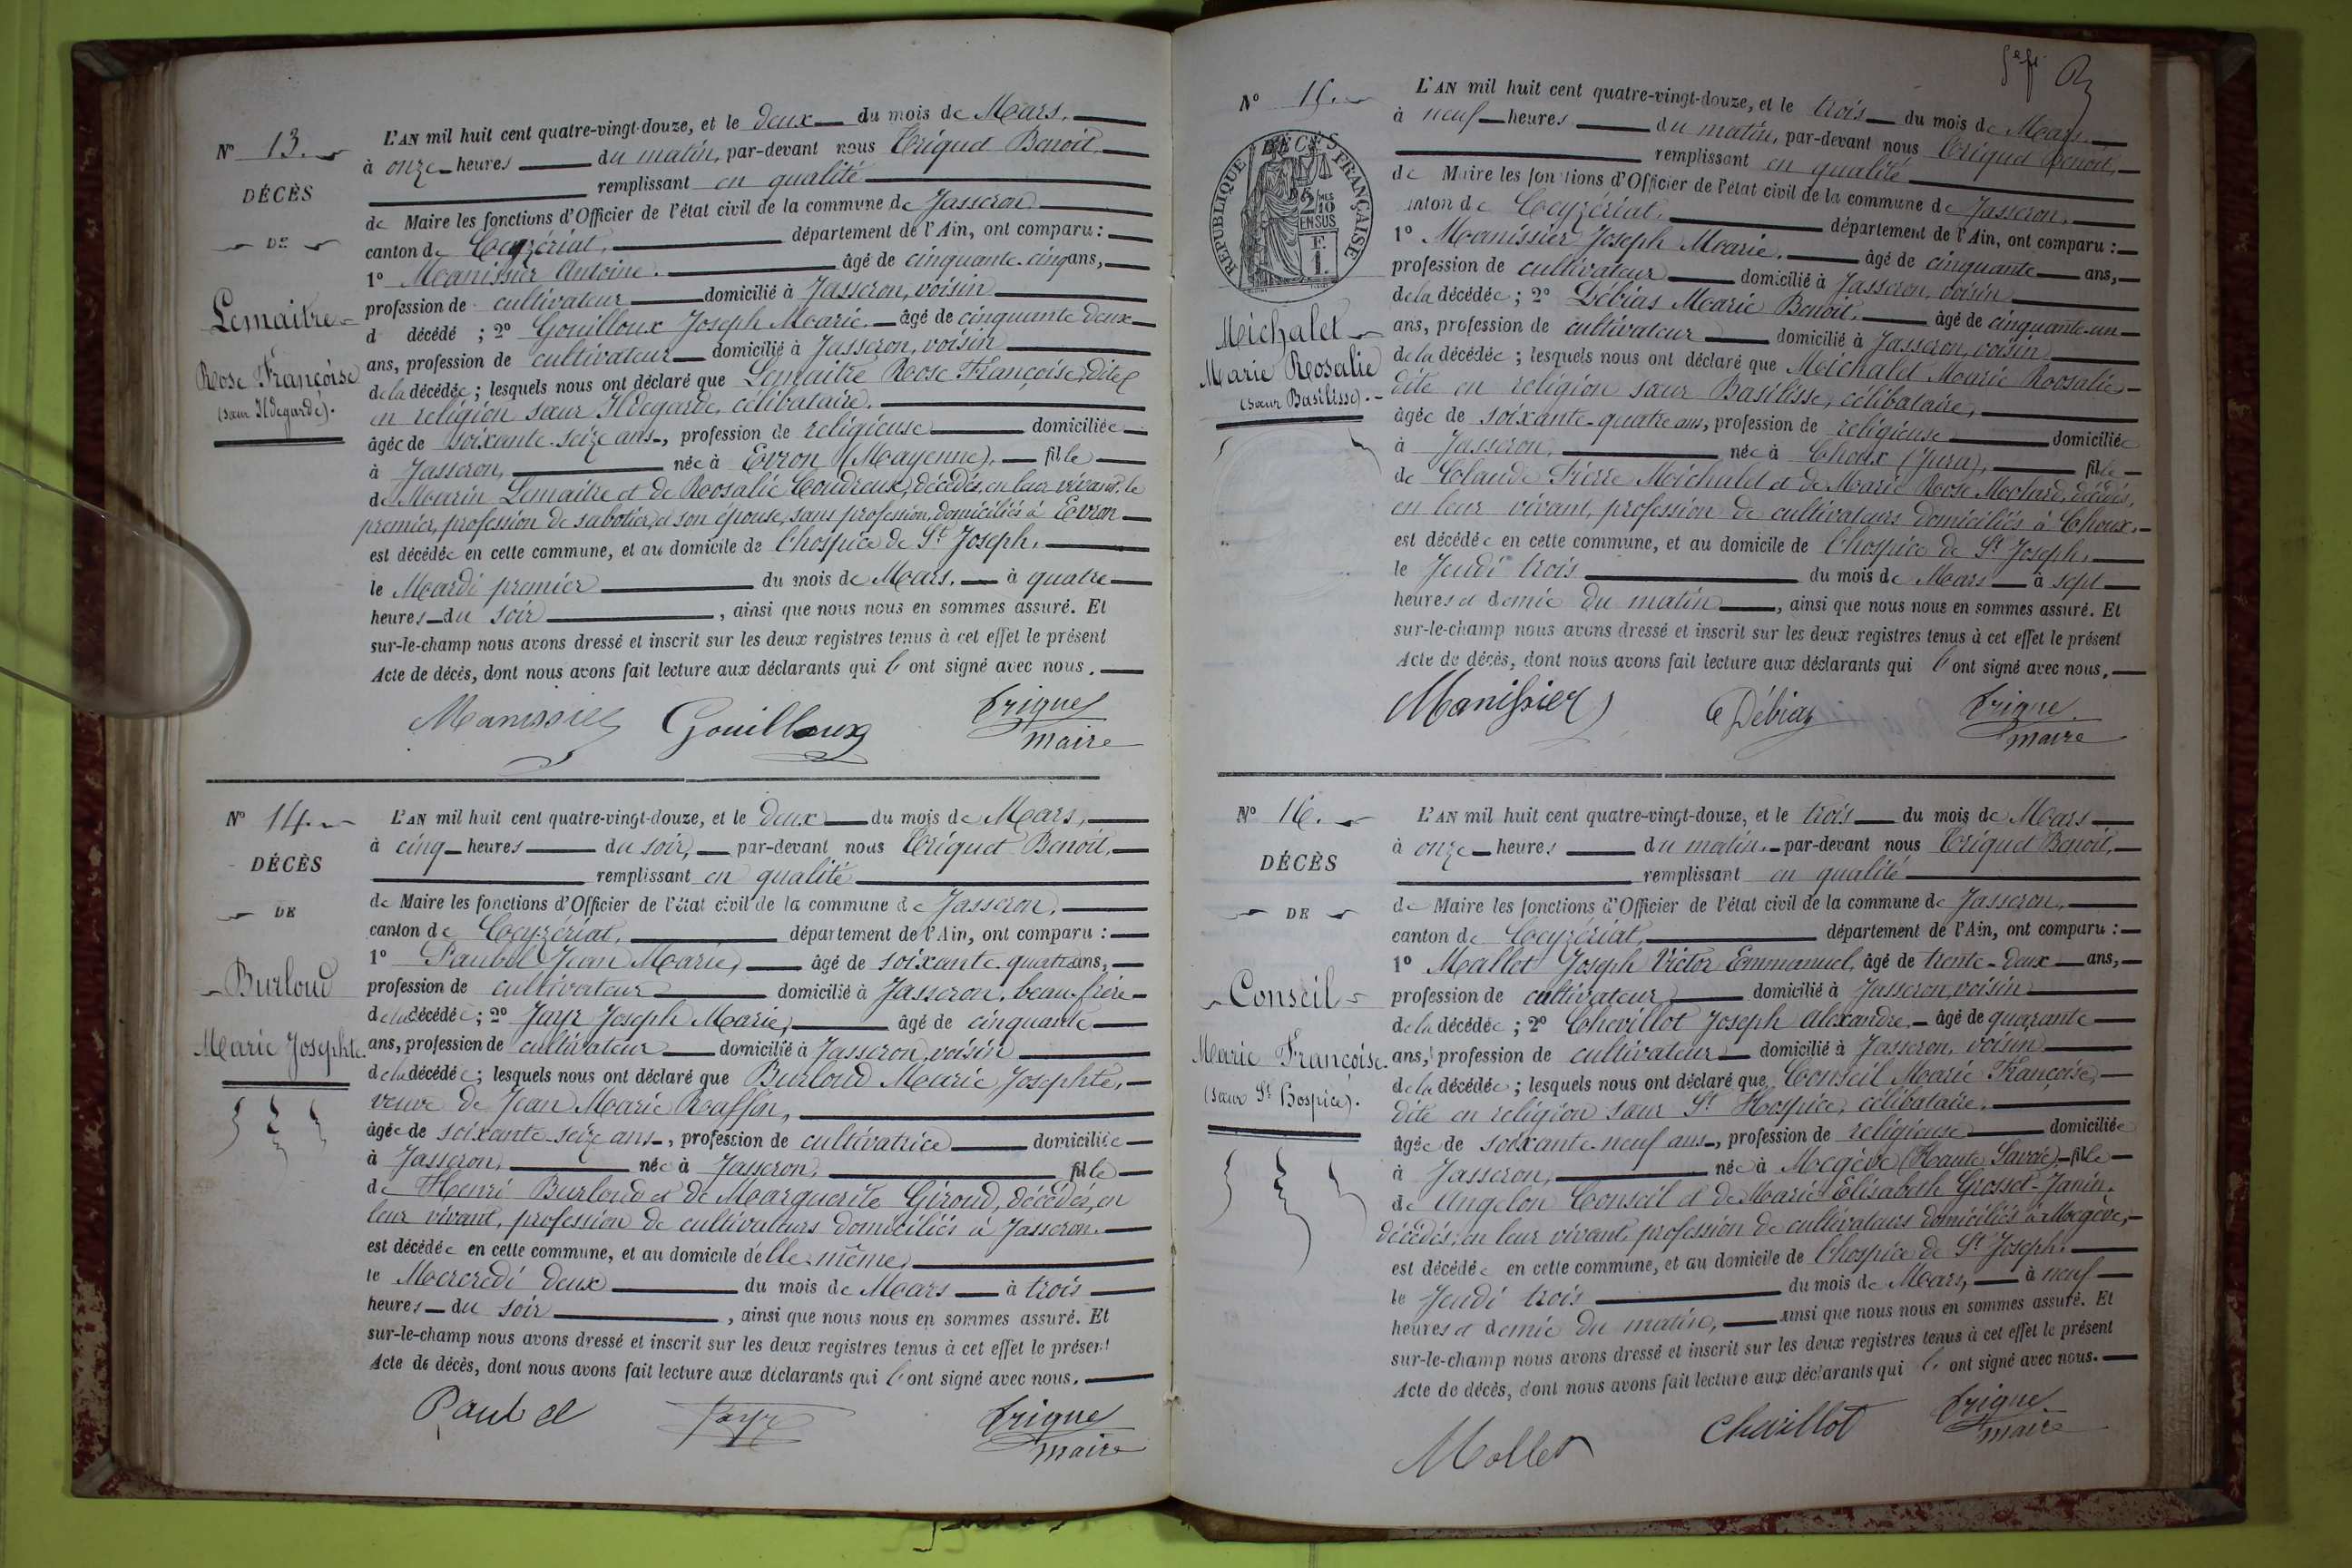 N° 13.
DÉCÈS
DE
Lemaitre
Rose Françoise
(sœur Ildegarde).
L'AN mil huit cent quatre-vingt-douze, et le deux du mois de Mars,
à onze heures du matin, par-devant nous Triquet Benoit,
remplissant en qualité
de Maire les fonctions d'Officier de l'état civil de la commune de Jasseron
canton de Ceyzériat, département de l'Ain, ont comparu :
1° Manissier Antoine. âgé de cinquante-cinq ans,
profession de cultivateur domicilié à Jasseron, voisin
d décédé ; 2° Gouilloux Joseph Marie. âgé de cinquante deux
ans, profession de cultivateur domicilié à Jasseron, voisin
de la décédée ; lesquels nous ont déclaré que Lemaitre Rose Françoise, dite
en religion sœur Ildegarde, célibataire.
âgée de soixante-seize ans, profession de religieuse domiciliée
à Jasseron, née à Evron (Mayenne), fille
de Marin Lemaitre et de Rosalie Coudreux, décédés, en leur vivant, le
premier, profession de sabotier, et son épouse, sans profession, domiciliés à Evron
est décédée en cette commune, et au domicile de l'hospice de St Joseph.
le Mardi premier du mois de Mars. à quatre
heures du soir , ainsi que nous nous en sommes assuré. Et
sur-le-champ nous avons dressé et inscrit sur les deux registres tenus à cet effet le présent
Acte de décès, dont nous avons fait lecture aux déclarants qui l'ont signé avec nous.
Manissier Gouilloux Triquet
maire
N° 14.
DÉCÈS
DE
Burloud
Marie Josephte.
L'AN mil huit cent quatre-vingt-douze, et le deux du mois de Mars,
à cinq heures du soir, par-devant nous Triquet Benoit,
remplissant en qualité
de Maire les fonctions d'Officier de l'état civil de la commune de Jasseron,
canton de Ceyzériat, département de l'Ain, ont comparu :
1° Paubel Jean Marie, âgé de soixante-quatre ans,
profession de cultivateur domicilié à Jasseron, beau-frère
de la décédée ; 2° Jayr Joseph Marie, âgé de cinquante
ans, profession de cultivateur domicilié à Jasseron, voisin
de la décédée ; lesquels nous ont déclaré que Burloud Marie Josephte,
veuve de Jean Marie Raffin,
âgée de soixante-seize ans, profession de cultivatrice domiciliée
à Jasseron, née à Jasseron, fille
de Henri Burloud et de Marguerite Giroud, décédés, en
leur vivant, profession de cultivateurs domiciliés à Jasseron.
est décédée en cette commune, et au domicile d'elle même,
le Mercredi deux du mois de Mars à trois
heures du soir , ainsi que nous nous en sommes assuré. Et
sur-le-champ nous avons dressé et inscrit sur les deux registres tenus à cet effet le présent
Acte de décès, dont nous avons fait lecture aux déclarants qui l'ont signé avec nous.
Paubel Jayr Triquet
maire
N° 15.
RÉPUBLIQUE FRANÇAISE
DÉCÈS
2/10
EN SUS
F.
1.
Michalet
Marie Rosalie
(sœur Basilisse).
L'AN mil huit cent quatre-vingt-douze, et le trois du mois de Mars,
à neuf heures du matin, par-devant nous Triquet Benoit,
remplissant en qualité
de Maire les fonctions d'Officier de l'état civil de la commune de Jasseron,
canton de Ceyzériat, département de l'Ain, ont comparu :
1° Manissier Joseph Marie. âgé de cinquante ans,
profession de cultivateur domicilié à Jasseron, voisin
de la décédée ; 2° Débias Marie Benoit. âgé de cinquante-un
ans, profession de cultivateur domicilié à Jasseron, voisin
de la décédée ; lesquels nous ont déclaré que Michalet Marie Rosalie
dite en religion sœur Basilisse, célibataire,
âgée de soixante-quatre ans, profession de religieuse domiciliée
à Jasseron, née à Choux (Jura), fille
de Claude Pierre Michalet et de Marie Rose Molard, décédés,
en leur vivant, profession de cultivateurs domiciliés à Choux.
est décédée en cette commune, et au domicile de l'hospice de St Joseph,
le Jeudi trois du mois de Mars à sept
heures et demie du matin , ainsi que nous nous en sommes assuré. Et
sur-le-champ nous avons dressé et inscrit sur les deux registres tenus à cet effet le présent
Acte de décès, dont nous avons fait lecture aux déclarants qui l'ont signé avec nous.
Manissier Débias Triquet
maire
N° 16.
DÉCÈS
DE
Conseil
Marie Françoise
(sœur St Hospice).
L'AN mil huit cent quatre-vingt-douze, et le trois du mois de Mars
à onze heures du matin. par-devant nous Triquet Benoit,
remplissant en qualité
de Maire les fonctions d'Officier de l'état civil de la commune de Jasseron,
canton de Ceyzériat, département de l'Ain, ont comparu :
1° Mallet Joseph Victor Emmanuel, âgé de trente-deux ans,
profession de cultivateur domicilié à Jasseron, voisin
de la décédée ; 2° Chevillot Joseph alexandre. âgé de quarante
ans, profession de cultivateur domicilié à Jasseron, voisin
de la décédée ; lesquels nous ont déclaré que Conseil Marie Françoise,
dite en religion sœur St Hospice, célibataire,
âgée de soixante-neuf ans, profession de religieuse domiciliée
à Jasseron, née à Megève (Haute Savoie), fille
de Angelon Conseil et de Marie Elisabeth Grosset-Janin,
décédés, en leur vivant, profession de cultivateurs domiciliés à Megève,
est décédée en cette commune, et au domicile de l'hospice de St Joseph.
le Jeudi trois du mois de Mars, à neuf
heures et demie du matin, ainsi que nous nous en sommes assuré. Et
sur-le-champ nous avons dressé et inscrit sur les deux registres tenus à cet effet le présent
Acte de décès, dont nous avons fait lecture aux déclarants qui l'ont signé avec nous.
Mollet Chevillot Triquet
maire